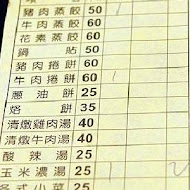 豬肉蒸餃 50
牛肉蒸餃 60
花素蒸餃 60
鍋貼 50
豬肉捲餅 60
牛肉捲餅 60
蔥油餅 25
烙餅 35
清燉雞肉湯 40
清燉牛肉湯 40
酸辣湯 25
玉米濃湯 25
各式小菜